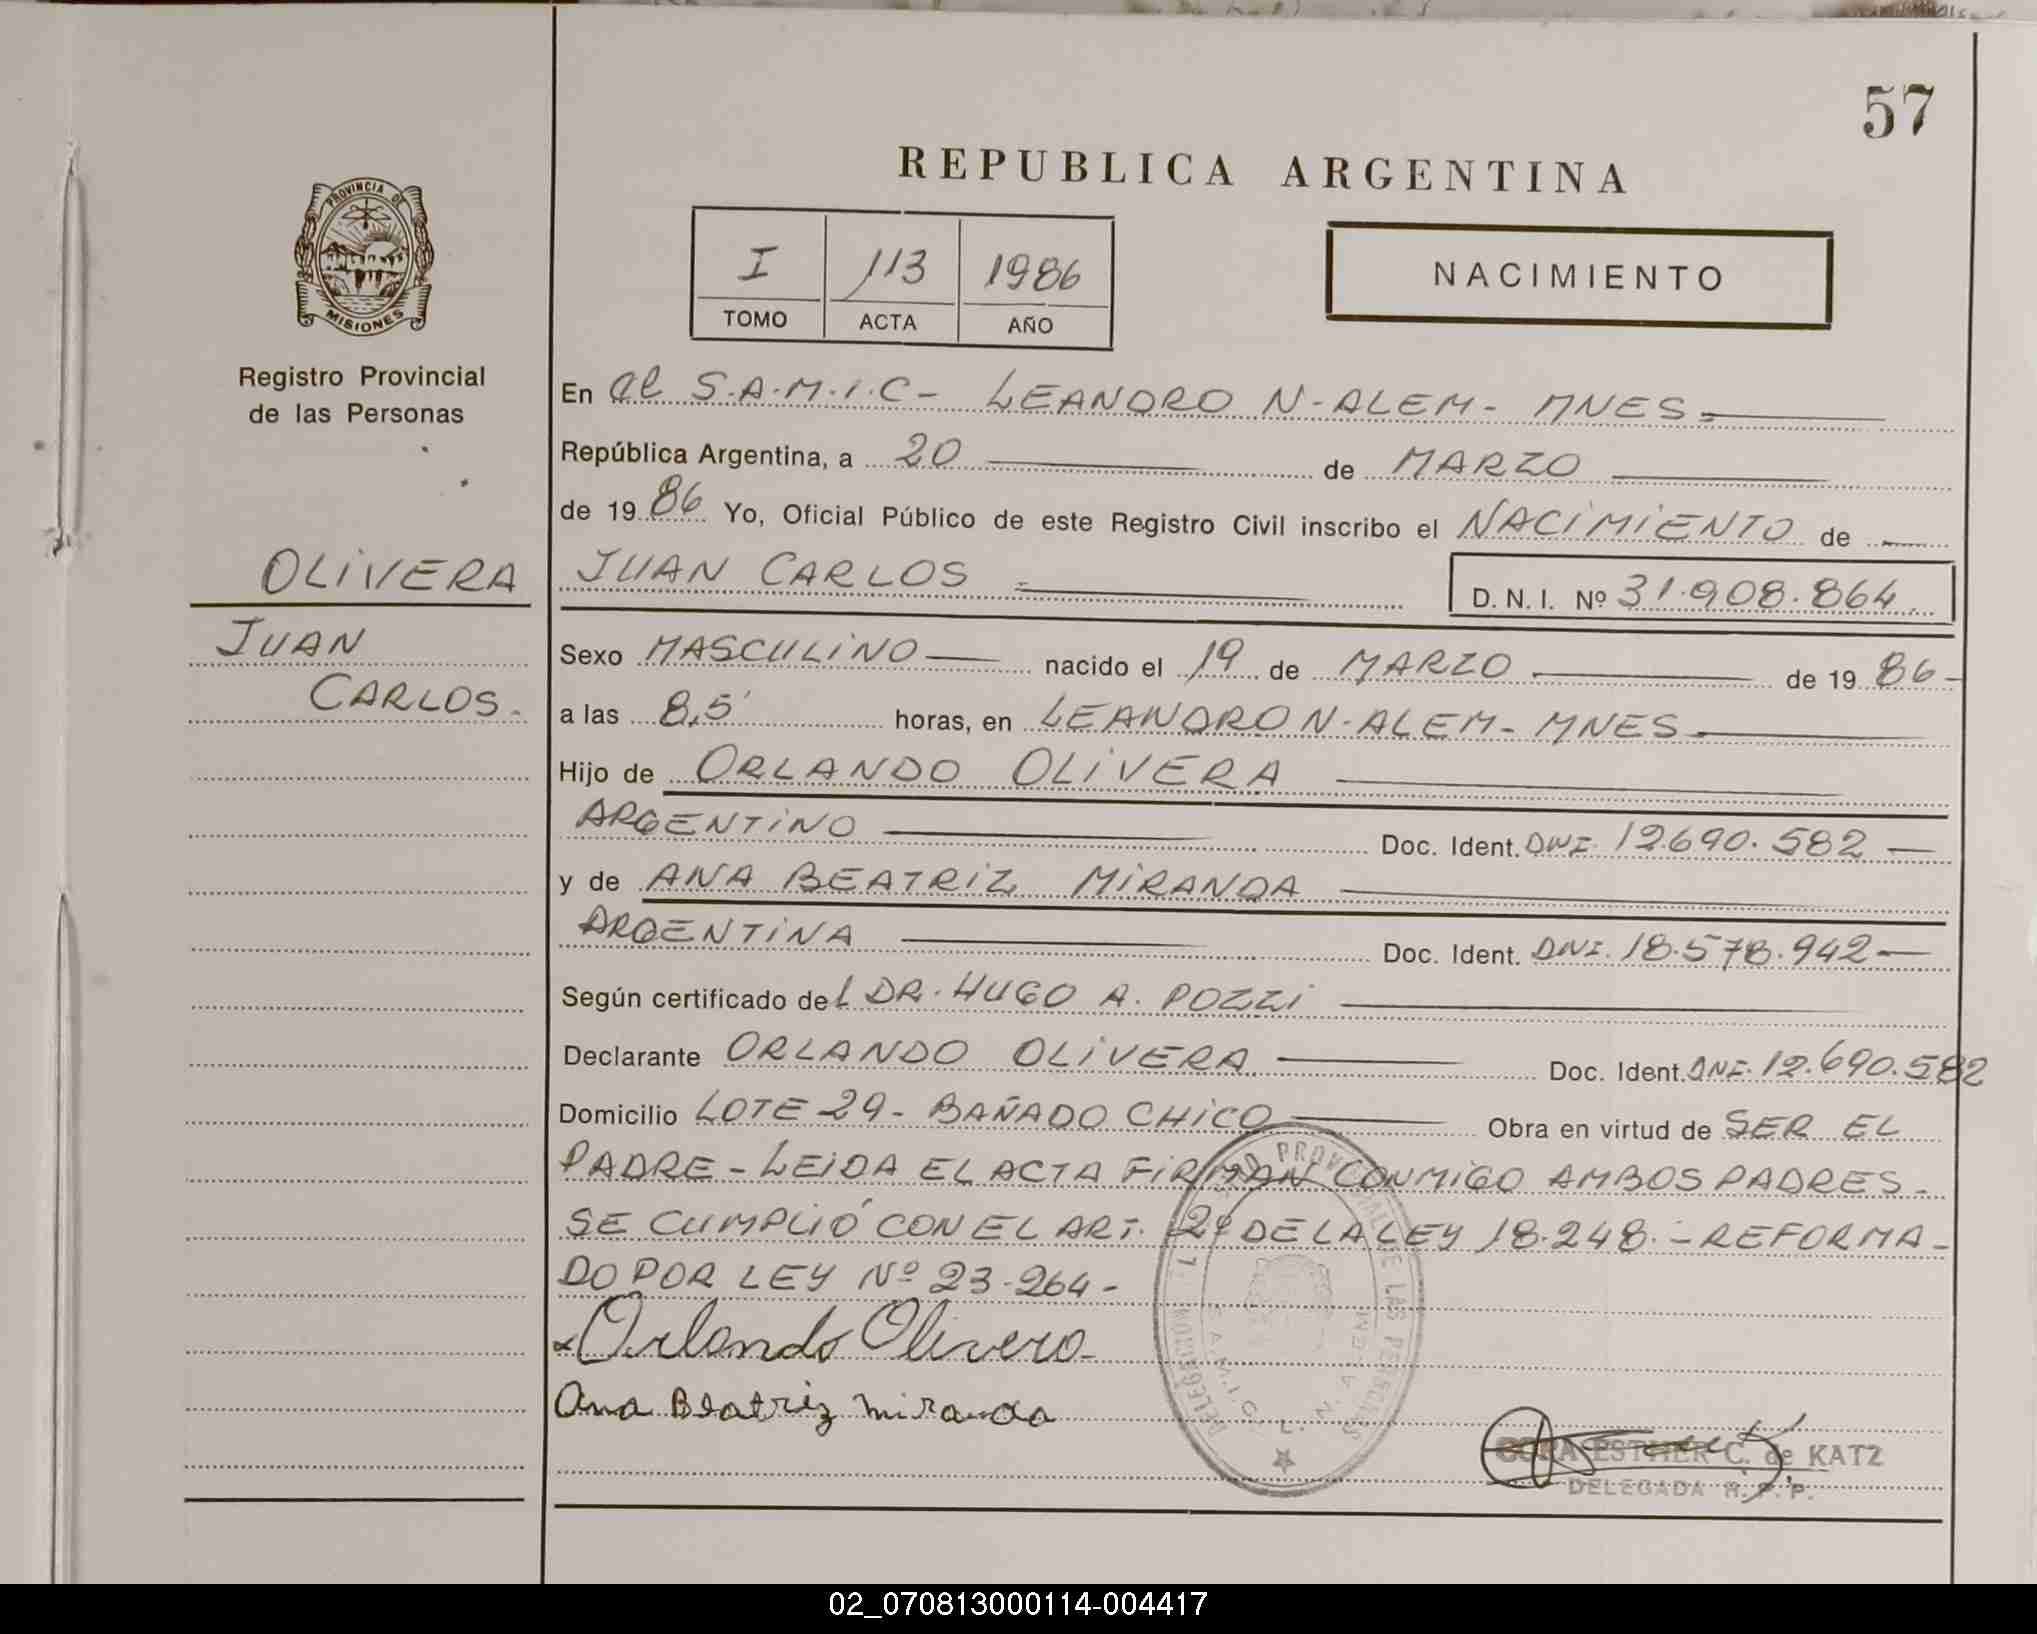 57
REPUBLICA ARGENTINA
PROVINCIA DE
MISIONES
I 113 1986
TOMO ACTA AÑO
NACIMIENTO
Registro Provincial
de las Personas
OLIVERA
JUAN
CARLOS.
En el S.A.M.I.C - LEANDRO N. ALEM - MNES.
República Argentina, a 20 de MARZO
de 1986 Yo, Oficial Público de este Registro Civil inscribo el NACIMIENTO de
JUAN CARLOS D. N. I. Nº 31.908.864
Sexo MASCULINO nacido el 19 de MARZO de 1986 -
a las 8,5' horas, en LEANDRO N. ALEM - MNES.
Hijo de ORLANDO OLIVERA
ARGENTINO Doc. Ident. DNI. 12.690.582 -
y de ANA BEATRIZ MIRANDA
ARGENTINA Doc. Ident. DNI. 18.578.942 -
Según certificado del DR. HUGO A. POZZI
Declarante ORLANDO OLIVERA Doc. Ident. DNI. 12.690.582
Domicilio LOTE 29 - BAÑADO CHICO Obra en virtud de SER EL
PADRE - LEIDA EL ACTA FIRMAN CONMIGO AMBOS PADRES -
SE CUMPLIÓ CON EL ART. 2º DE LA LEY 18.248. - REFORMA -
DO POR LEY Nº 23.264 -
Orlando Olivera
Ana Beatriz Miranda
S.A.M.I.C. L. N. ALEM
ESTHER C. de KATZ
DELEGADA R. P. P.
02_070813000114-004417